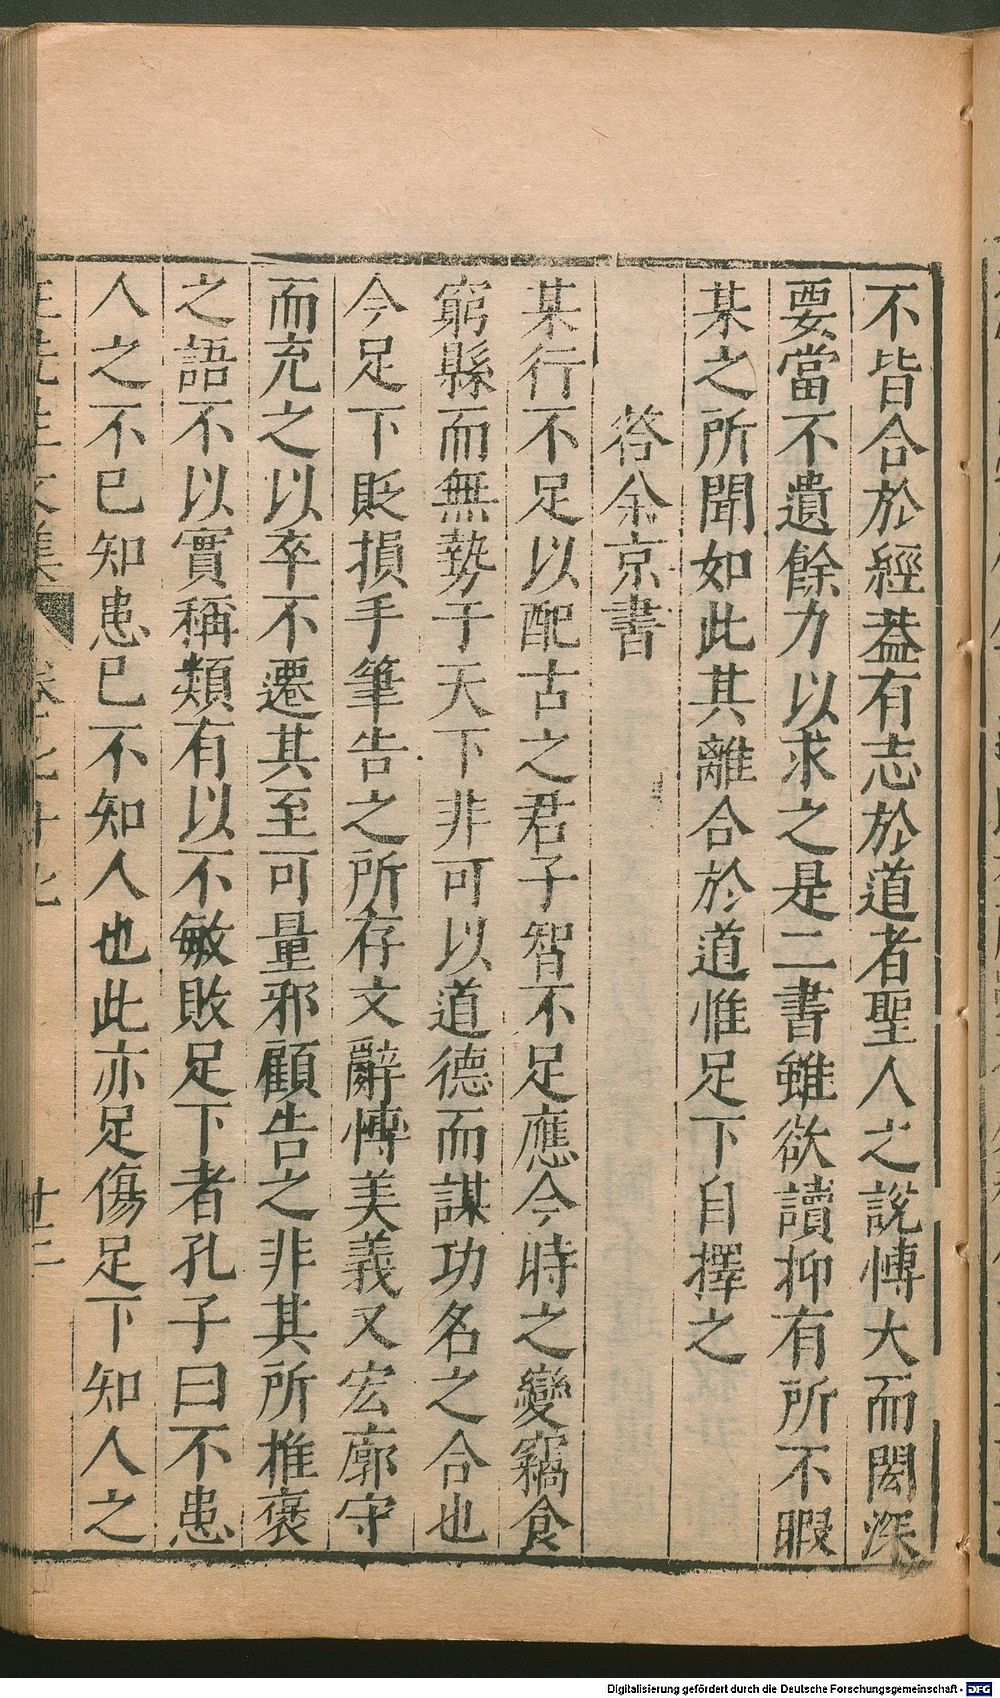 不皆合於經葢有志於道者聖人之說愽大而閎深
要當不遺餘力以求之是二書雖欲讀抑有所不暇
某之所聞如此其離合於道惟足下自擇之
荅余京書
某行不足以配古之君子智不足應今時之變竊食
窮縣而無勢于天下非可以道德而謀功名之合也
今足下貶損手筆告之所存文辭愽美義又宏廓守
而充之以卒不遷其至可量邪顧告之非其所推褒
之語不以實稱類有以不敏敗足下者孔子曰不患
人之不已知患已不知人也此亦足傷足下知人之
Digitalisierung gefördert durch die Deutsche Forschungsgemeinschaft - DFG